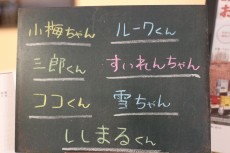 小梅ちゃん ルークくん
三郎くん すいれんちゃん
ココくん 雪ちゃん
ししまるくん